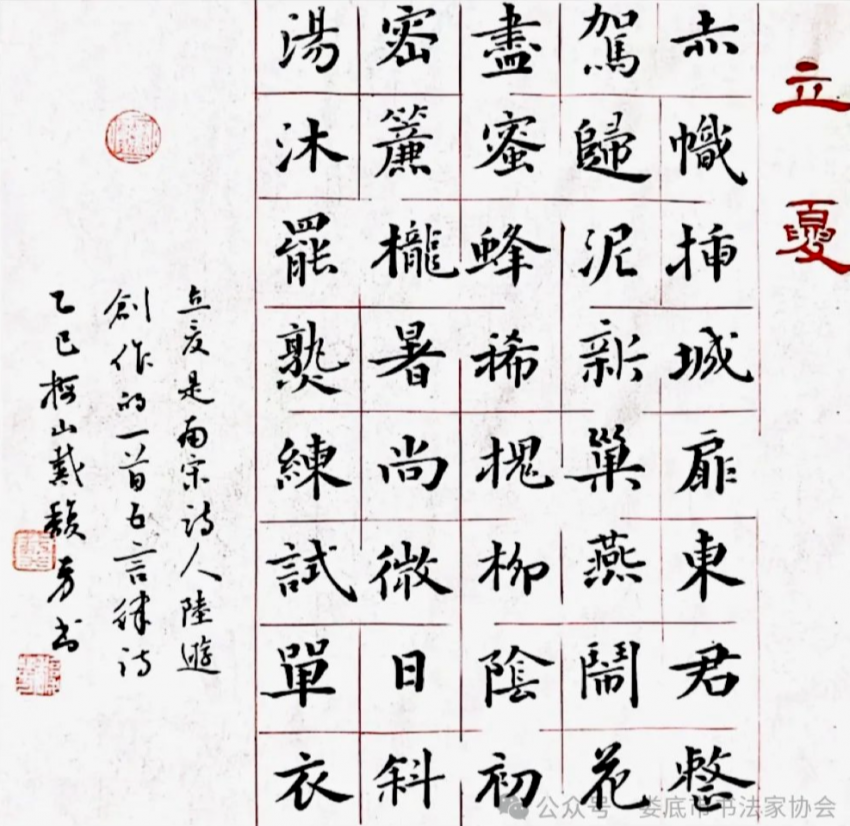 立夏
赤幟插城扉東君整
駕歸泥新巢燕鬧花
盡蜜蜂稀槐柳陰初
密簾櫳暑尚微日斜
湯沐罷熟練試單衣
立夏是南宋诗人陸遊
創作的一首五言律诗
乙巳梅山戴馥芳书
公众号·娄底市书法家协会